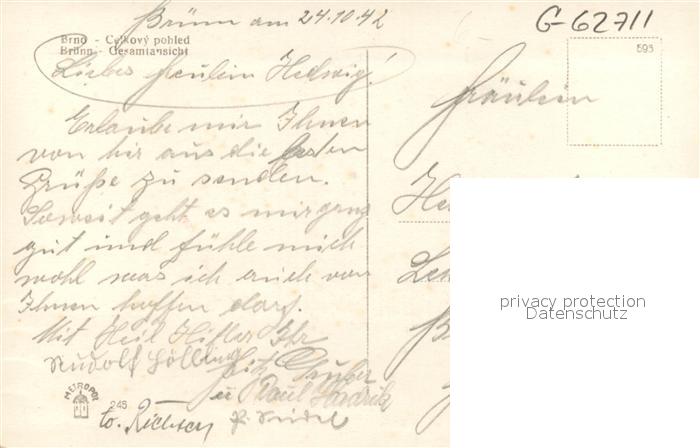 Brünn am 24.10.42
G-62711
Brno - Celkový pohled
Brünn - Gesamtansicht
593
Liebes Fräulein Hedwig!
Fräulein
Erlaube mir Ihnen
von hir aus die besten
Grüße zu senden.
Soweit geht es mir ganz
gut und fühle mich
wohl was ich auch von
Ihnen hoffen darf.
Mit Heil Hitler Ihr
Rudolf
Fritz Gruber
u Paul
METROPOL
245
Richter
P. Seidel
privacy protection
Datenschutz